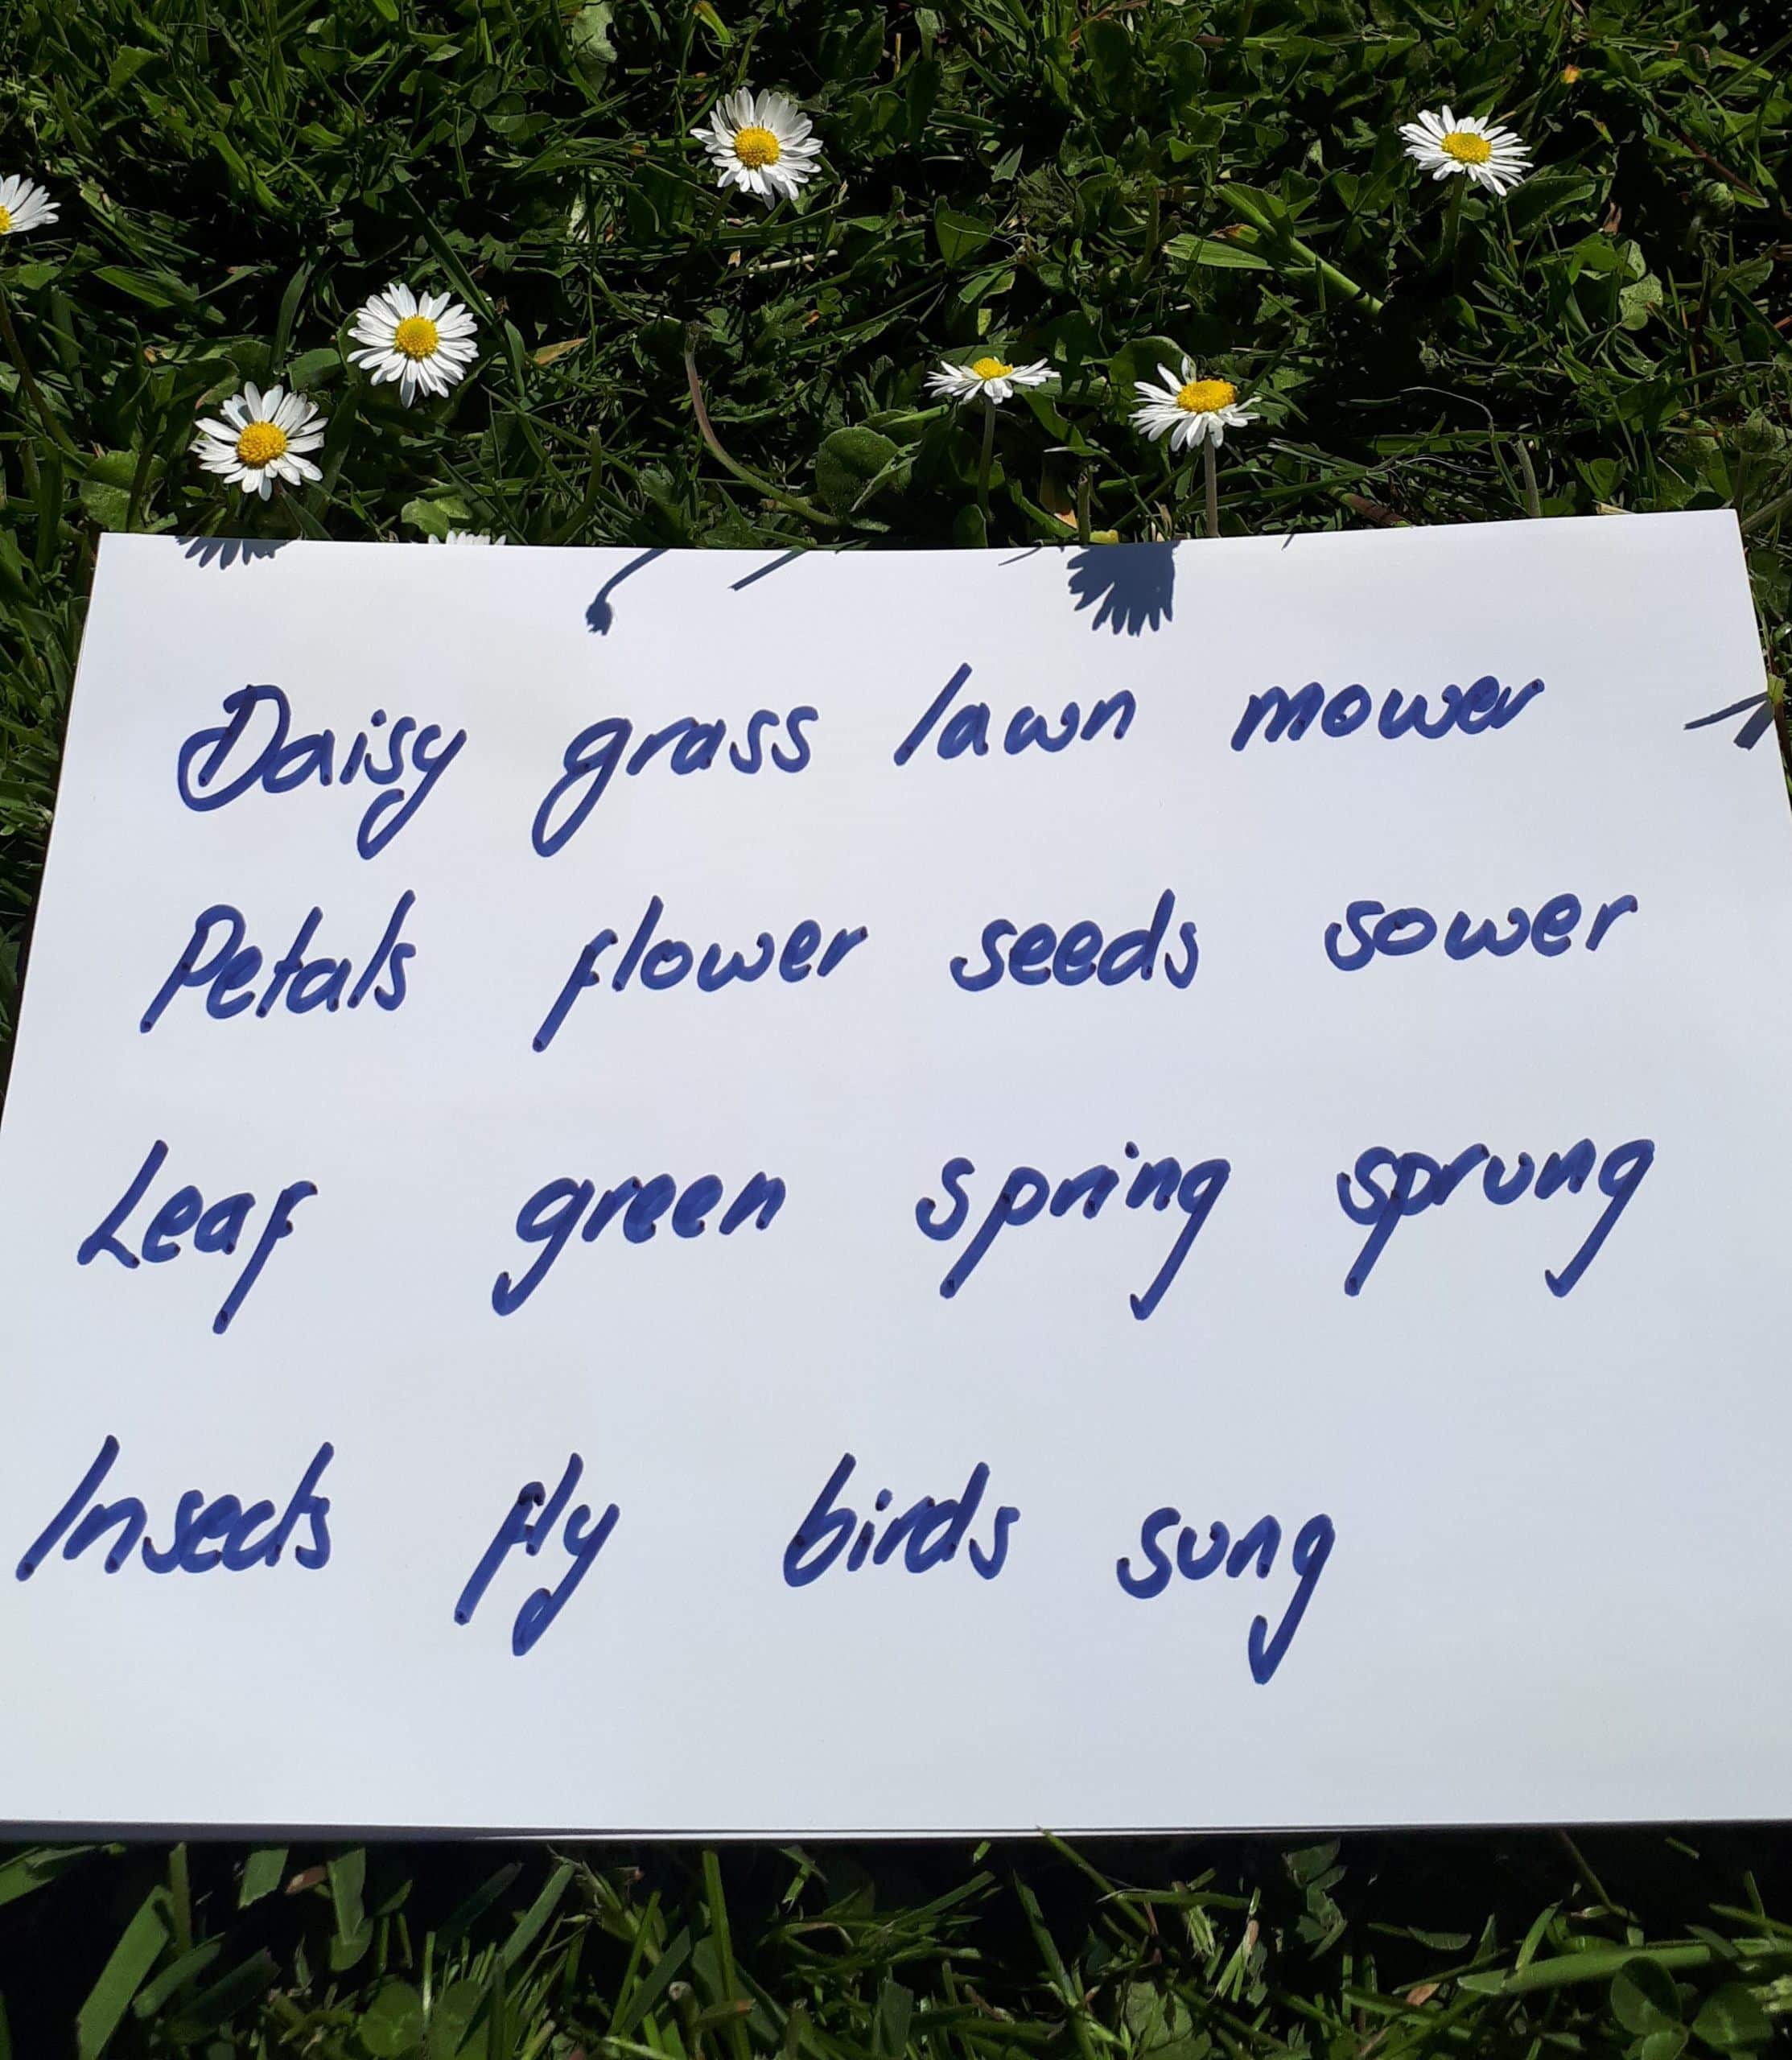 Daisy grass lawn mower
Petals flower seeds sower
Leaf green spring sprung
Insects fly birds sung